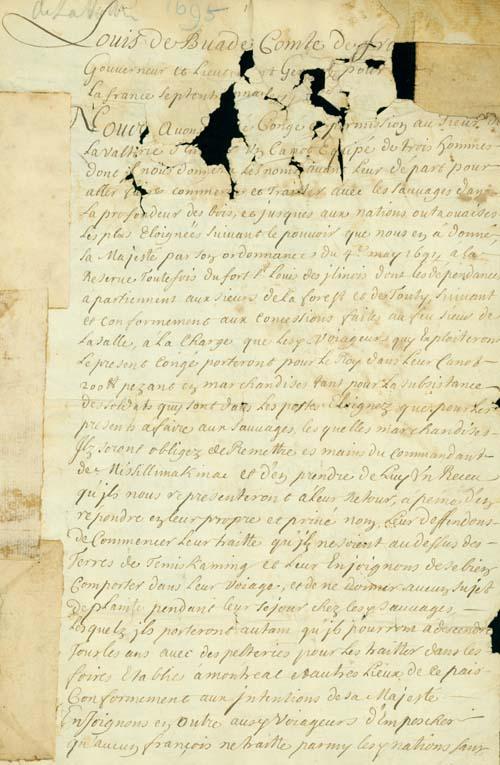 de La Valtrie 1695
Louis de Buade Comte de fro
Gouverneur et Lieuten t Ge pour
La france septentrionnale
Nous Avons Congé et permission au Sieur de
La valtrie un Canot Equipé de trois hommes
dont il nous donnera Les noms avant Leur départ pour
aller faire commerce et traitter avec les sauvages dans
La profondeur des bois, et jusques aux nations outaouaises
Les plus Eloignées suivant le pouvoir que nous en a donné
sa Majesté par son ordonnance du 4e may 1694 a la
Reserve Toutefois du fort St Louis des ilinois dont les dependances
apartiennent aux sieurs de La forest et de Tonty, suivant
et conformement aux concessions faites au feu sieur de
La salle, a La Charge que Lesy Voyageurs quy Exploiteront
Le present Congé porteront pour le Roy dans Leur Canot
200lt pezant en marchandises tant pour La subsistance
des soldats quy sont dans Les postes Eloignez que pour Les
presents a faire aux sauvages, les quelles marchandises
Ilz seront obligez de Remettre es mains du commandant
de Missilimakinac et d'en prendre de Luy Un Receu
qu'ils nous representeront a Leur Retour, a peine d'en
répondre en Leur propre et privé nom, Leur deffendons
de Commencer Leur traitte qu'ilz ne soient au dessus des
Terres de Temiskaming et Leur Enjoignons de se bien
Comporter dans Leur Voiage, et de ne donner aucun sujet
de plainte pendant leur sejour chez lesy sauvages
Lesquelz ils porteront autant qu'ils pourront a descendre
Tous les ans avec des pelteries pour Les traitter dans les
foires Etablies a montreal et autres Lieux de ce pais
Conformement aux Intentions de sa Majesté
Enjoignons en Outre ausy Voyageurs d'Empescher
qu'aucun françois ne traitte parmy lesy nations sans